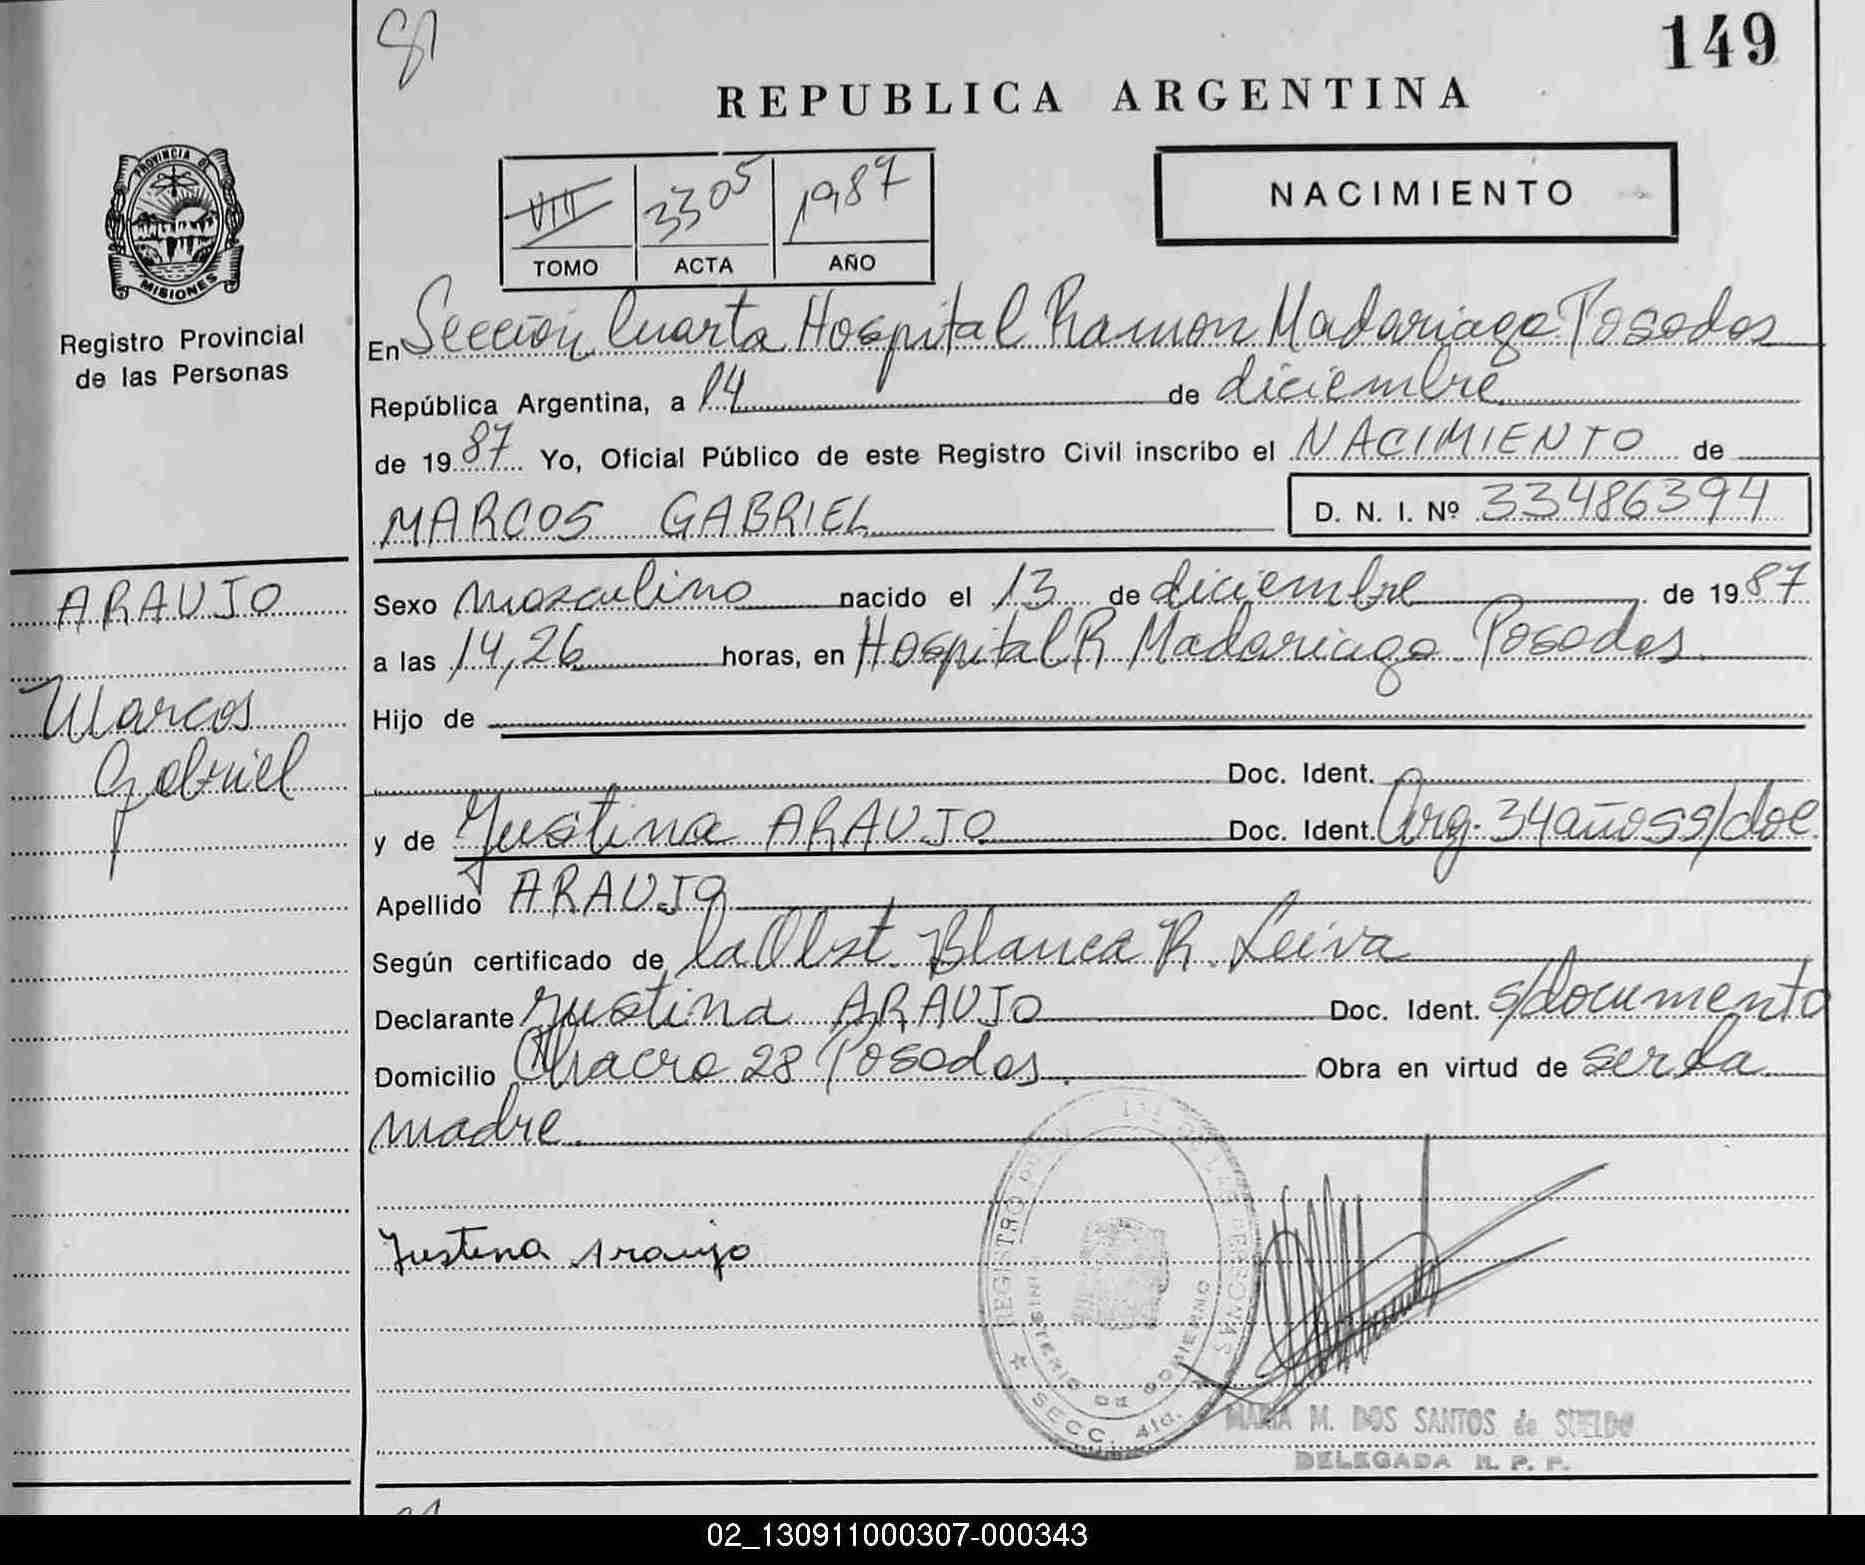 149
REPUBLICA ARGENTINA
PROVINCIA DE
MISIONES
Registro Provincial
de las Personas
VIII 3305 1987
TOMO ACTA AÑO
NACIMIENTO
En Sección Cuarta Hospital Ramon Madariaga Posadas
República Argentina, a 14 de diciembre
de 1987 Yo, Oficial Público de este Registro Civil inscribo el NACIMIENTO de
MARCOS GABRIEL D. N. I. Nº 33486394
ARAUJO
Marcos
Gabriel
Sexo masculino nacido el 13 de diciembre de 1987
a las 14,26 horas, en Hospital R Madariaga Posadas
Hijo de
Doc. Ident.
y de Justina ARAUJO Doc. Ident. Arg. 34 años s/doc
Apellido ARAUJO
Según certificado de la Obst. Blanca R. Leiva
Declarante Justina ARAUJO Doc. Ident. s/documento
Domicilio Chacra 28 Posadas. Obra en virtud de ser la
madre.
Justina Araujo
REGISTRO DE LAS PERSONAS
MINISTERIO DE GOBIERNO
SECC. 4ta.
MARIA M. DOS SANTOS de SUELDO
DELEGADA R. P. P.
02_130911000307-000343